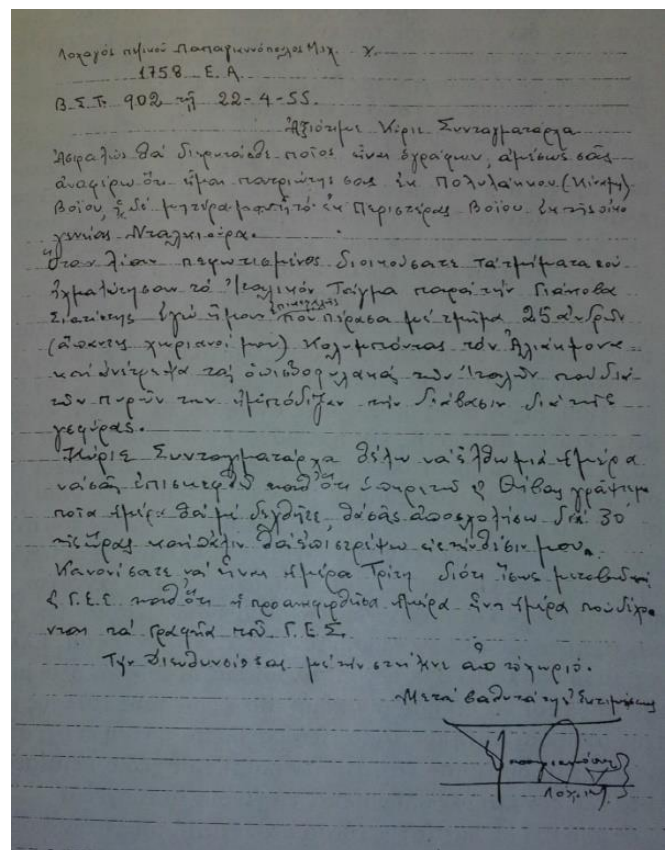 Λοχαγός πεζικού Παπαγιαννόπουλος Μιχ. Χ.
1758 Ε.Α.
Β.Σ.Τ. 902 τῇ 22-4-55.
Ἀξιότιμε Κύριε Συνταγματάρχα
Ἀσφαλῶς θά διερωτᾶσθε ποῖος εἶναι ὁ γράφων, ἀμέσως σᾶς
ἀναφέρω ὅτι εἶμαι πατριώτης σας ἐκ Πολυλάκκου (Κιναμη)
Βοΐου, ἡ δέ μητέρα μου ἐκ Περιστέρας Βοΐου ἐκ τῆς οἰκο
γενείας Νταλκιούρα.
Ὅταν λίαν πεφωτισμένος διοικούσατε τά τμήματα πού
ἠχμαλώτησαν τό Ἰταλικόν Τάγμα παρά τήν Γιάνκοβα
Σιατίστης ἐγώ ἤμουν ἐπικεφαλῆς πού πέρασα μέ τμῆμα 25 ἀνδρῶν
(ἅπαντες χωριανοί μου) κολυμπόντας τόν Ἁλιάκμονα
καί ἀνέτρεψα τάς ὀπισθοφυλακάς τῶν Ἰταλῶν πού διά
τῶν πυρῶν των ἠμπόδιζαν τήν διάβασιν διά τῆς
γεφύρας.
Κύριε Συνταγματάρχα θέλω νά ἔλθω μιά ἡμέρα
νά σᾶς ἐπισκεφθῶ καθ' ὅτι ὑπηρετῶ Θήβας γράψτε μου
ποῖα ἡμέρα θά μέ δεχθῆτε, θά σᾶς ἀποσχολήσω διά 30'
τῆς ὥρας καί πάλιν θά ἐπιστρέψω εἰς τήν θέσιν μου.
Κανονίσατε νά εἶναι ἡμέρα Τρίτη διότι ἴσως μεταβῶ
Γ.Ε.Σ καθ' ὅτι ἡ προαναφερθεῖσα ἡμέρα εἶναι ἡμέρα πού δέχο
νται τά γραφεῖα τοῦ Γ.Ε.Σ.
Τήν διεύθυνσίν σας μέ τήν στείλανε ἀπό τό χωριό.
Μετά βαθυτάτης ἐκτιμήσεως